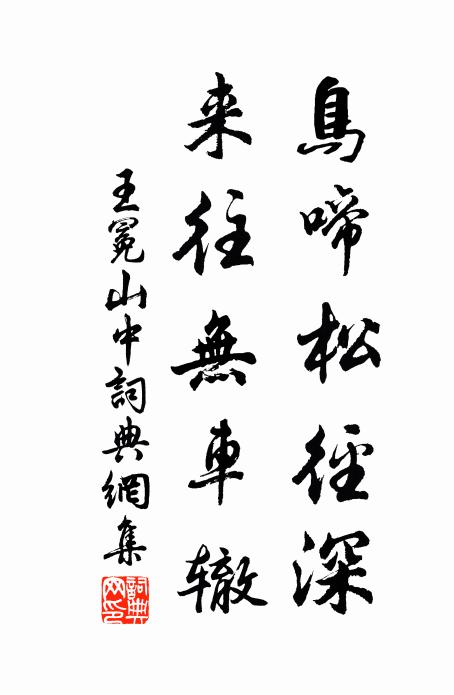 鳥啼松徑深
来往無車辙
王冕山中詞典網集
詞典網印